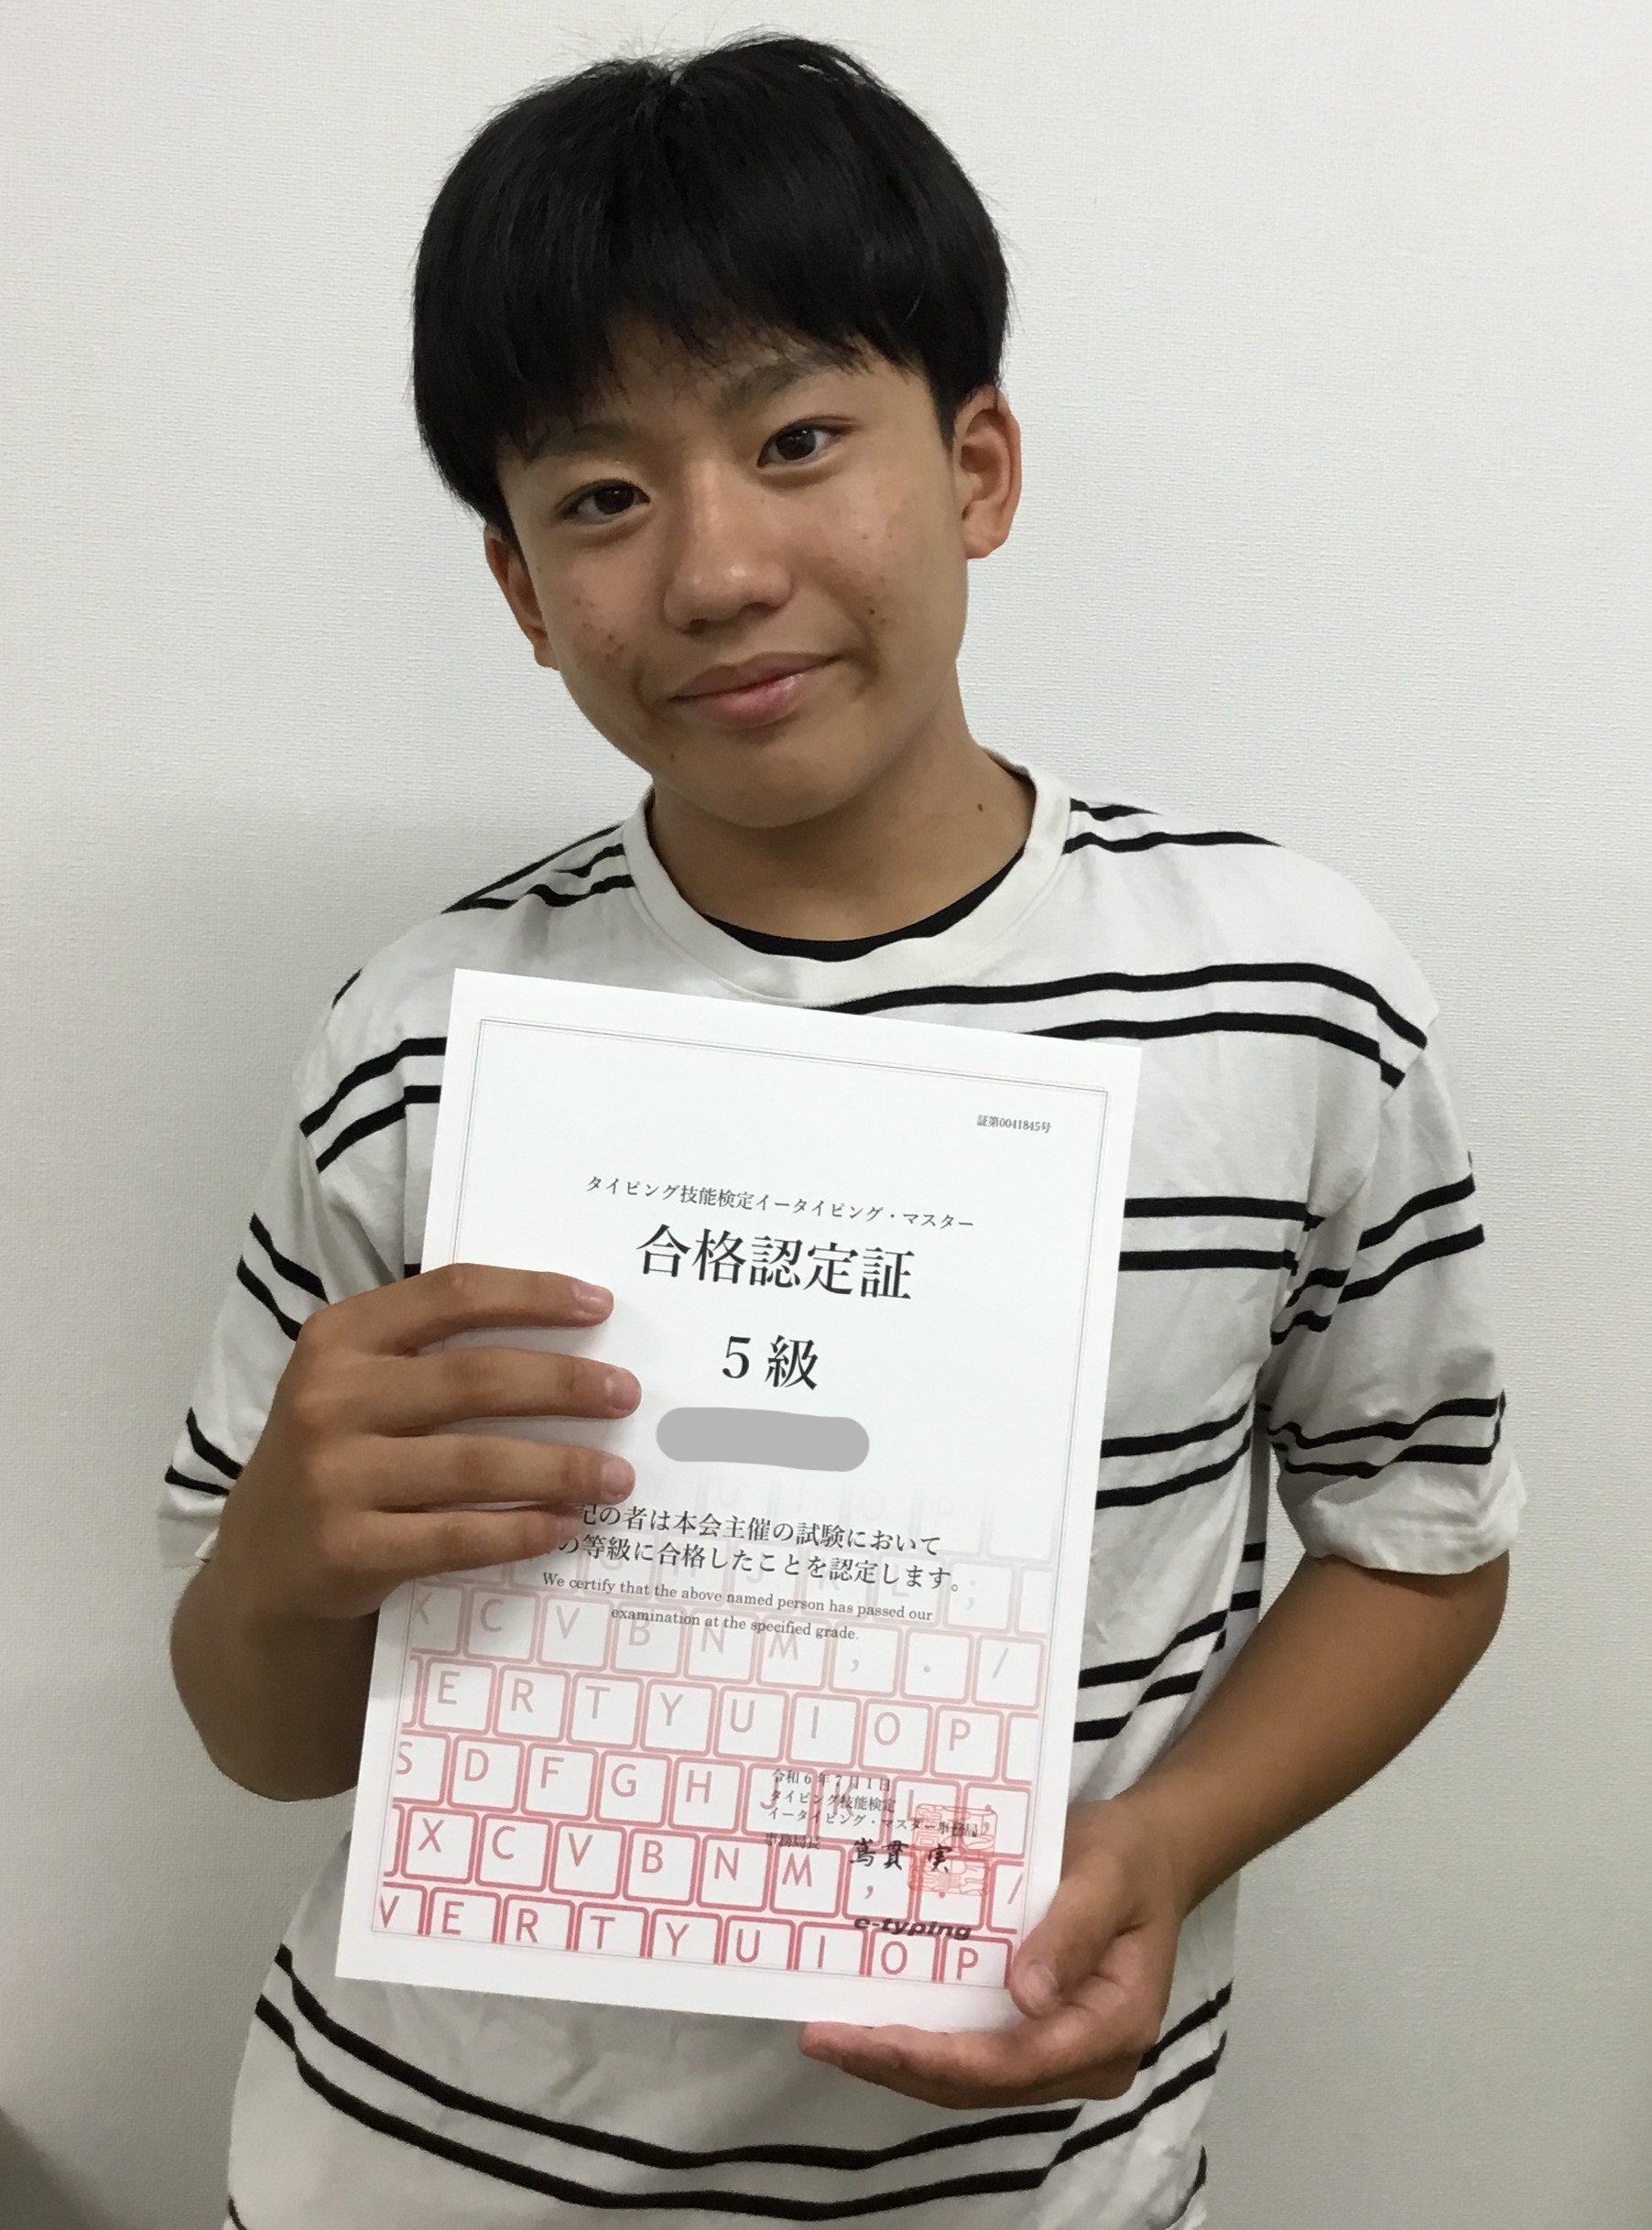 証第0041845号
タイピング技能検定イータイピング・マスター
合格認定証
5級
記の者は本会主催の試験において
の等級に合格したことを認定します。
We certify that the above named person has passed our
examination at the specified grade.
C V B N M , . /
E R T Y U I O P
S D F G H J K L ;
X C V B N M , . /
E R T Y U I O P
令和6年7月1日
タイピング技能検定
イータイピング・マスター事務局
事務局長 蔦貫 実
e-typing